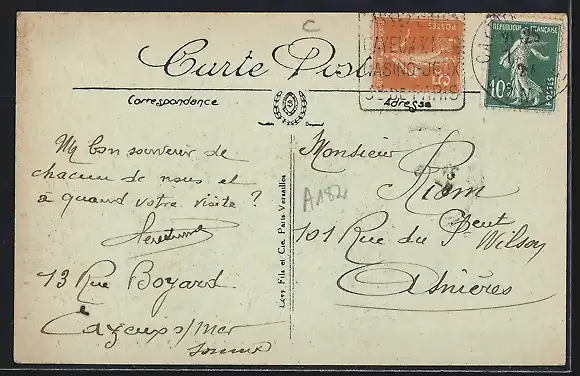 C
Carte Postale
POSTES
CAYEUX S/ M
CASINO-JEUX
3h DE PARIS
REPUBLIQUE FRANÇAISE
POSTES
10c
Correspondance
Adresse
Un bon souvenir de
chacun de nous et
à quand votre visite ?
13 Rue Boyard
Cayeux s/Mer
Somme
Lévy Fils et Cie, Paris Versailles
A182
Monsieur
Riom
101 Rue du Pt Wilson
Asnières